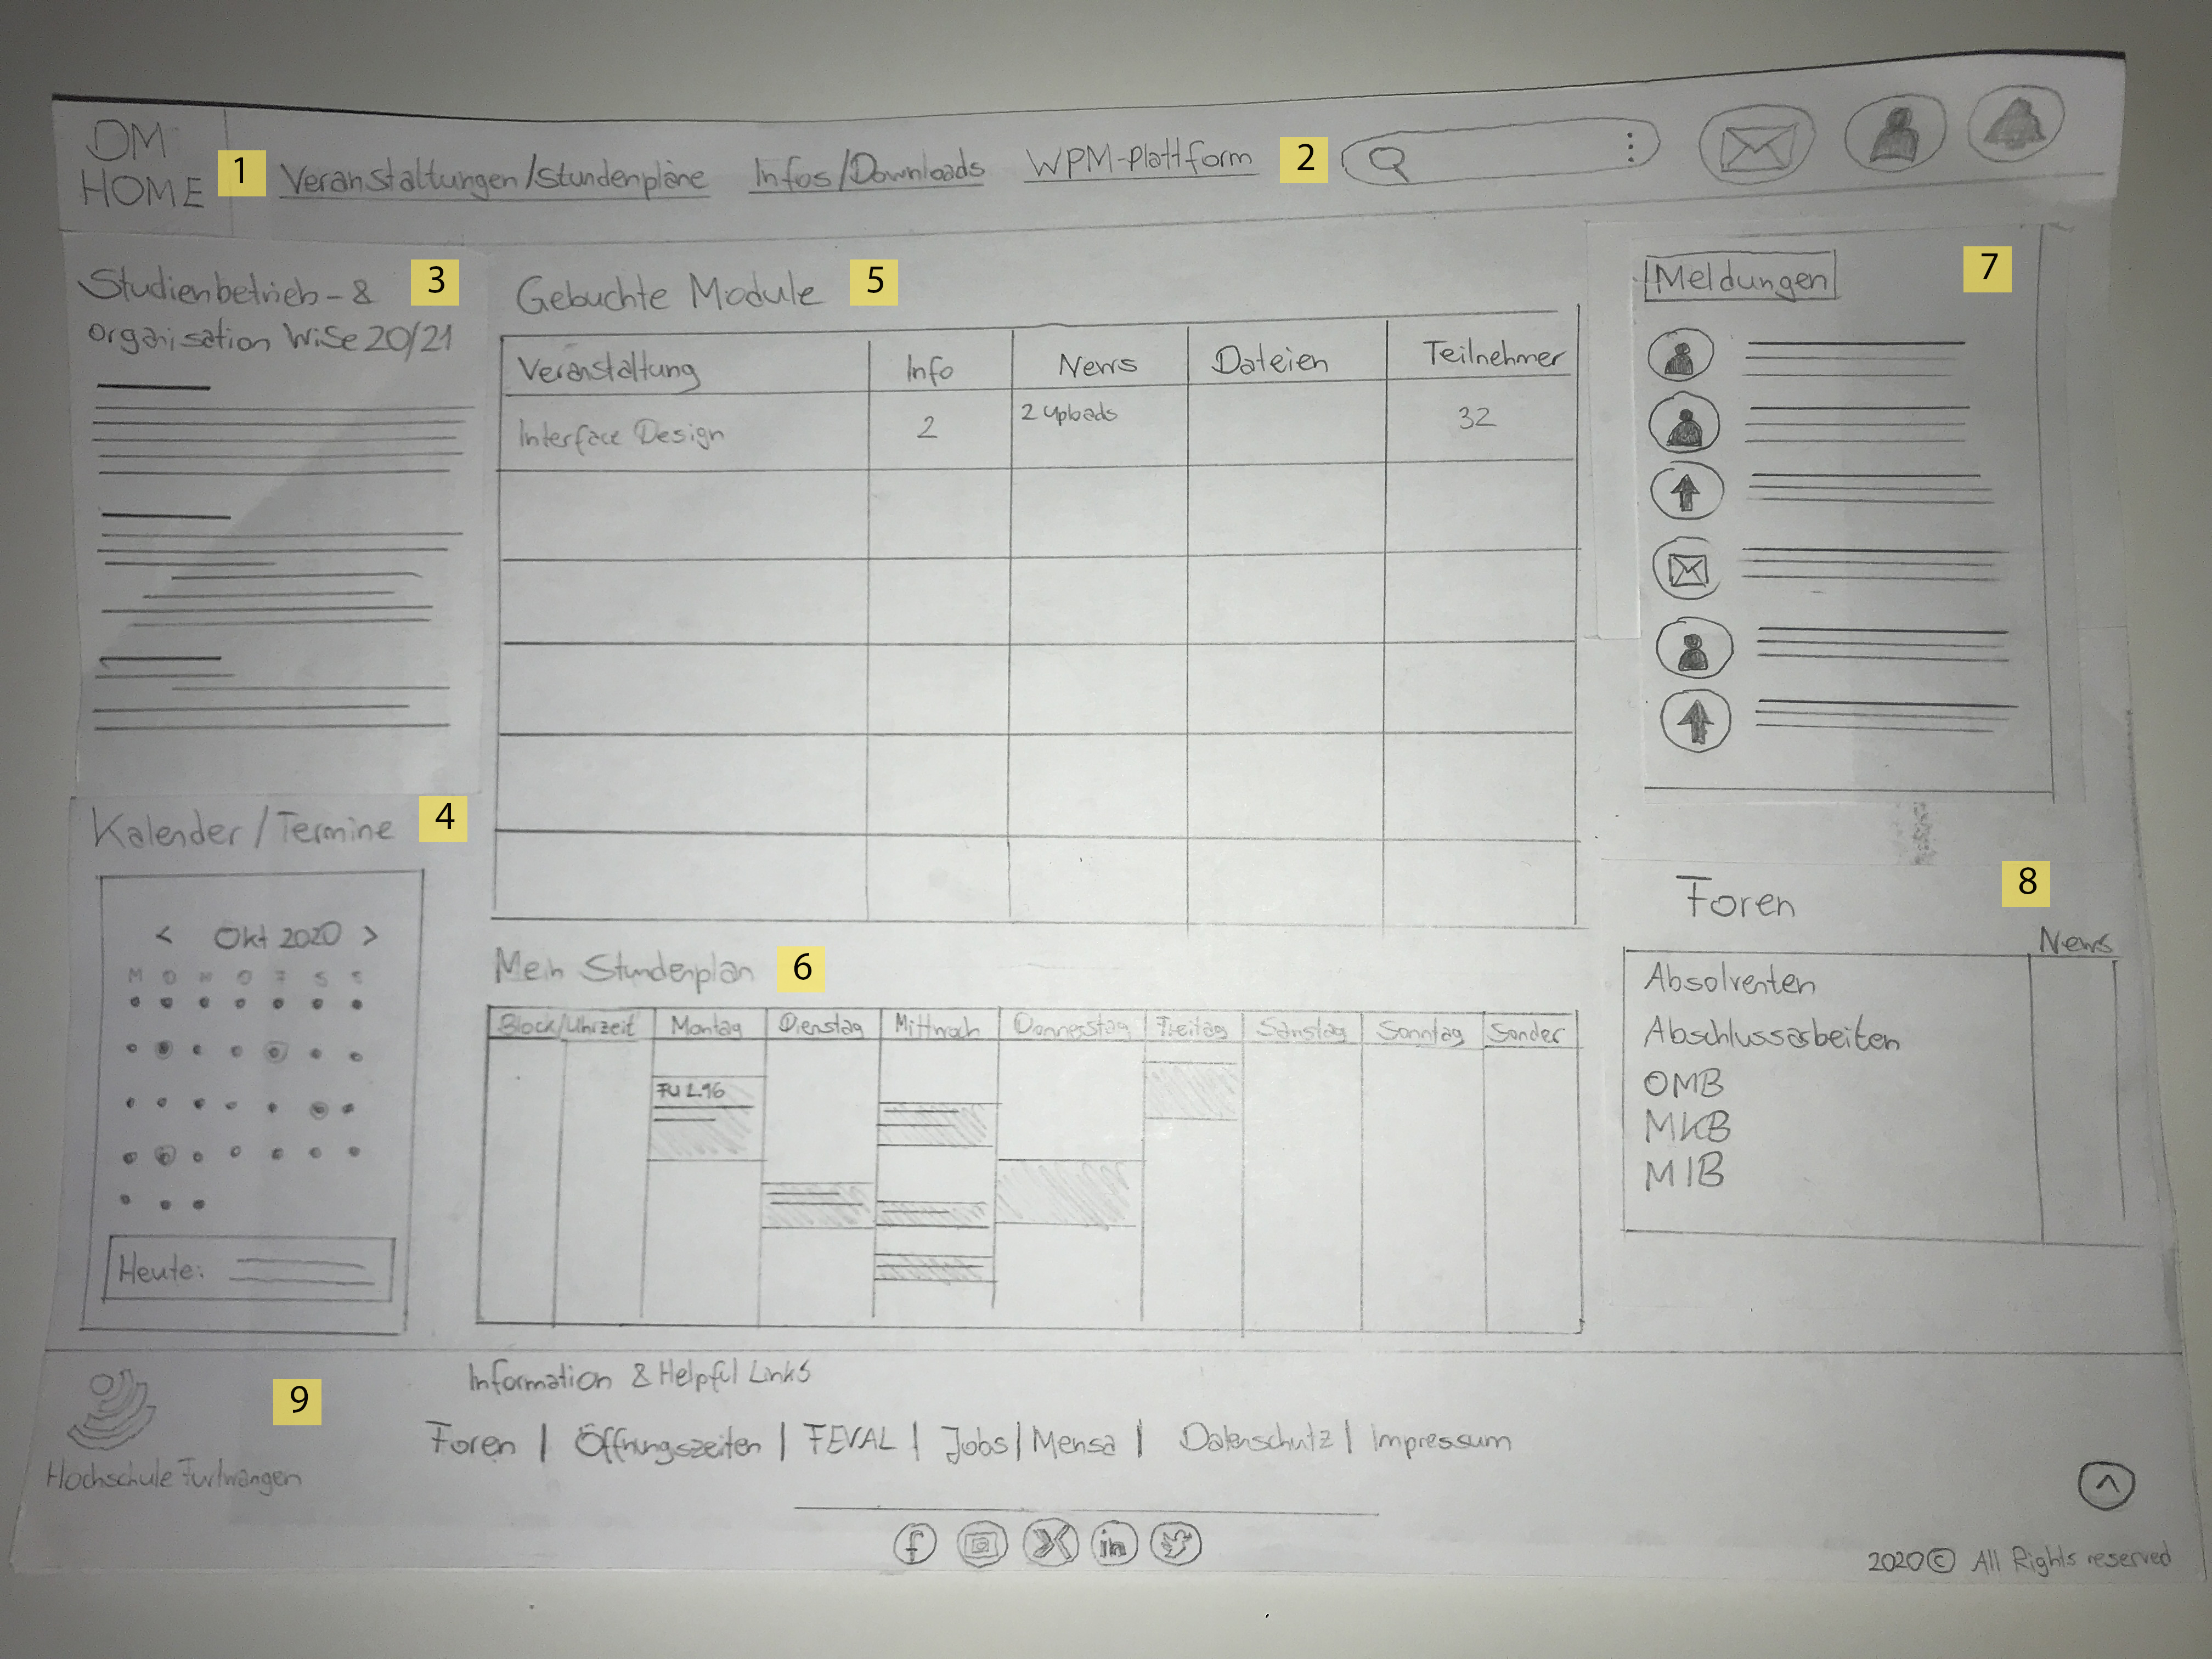 DM
HOME
1
Veranstaltungen/Stundenpläne
Infos/Downloads
WPM-Plattform
2
Studienbetrieb- &
organisation WiSe 20/21
3
Kalender/Termine
4
< Okt 2020 >
M D M D F S S
Heute:
Gebuchte Module
5
Veranstaltung Info News Dateien Teilnehmer
Interface Design 2 2 Uploads 32
Mein Stundenplan
6
Block/Uhrzeit Montag Dienstag Mittwoch Donnerstag Freitag Samstag Sonntag Sonder
Meldungen
7
Foren
8
News
Absolventen
Abschlussarbeiten
OMB
MKB
MIB
9
Hochschule Furtwangen
Information & Helpful Links
Foren | Öffnungszeiten | FEVAL | Jobs | Mensa | Datenschutz | Impressum
f in
2020 © All Rights reserved